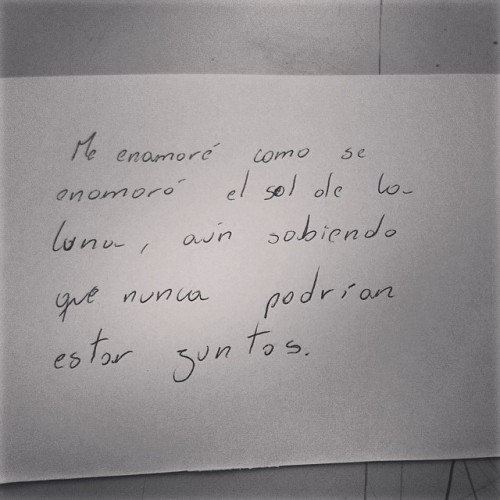 Me enamoré como se
enamoró el sol de la
luna, aún sabiendo
que nunca podrían
estar juntos.